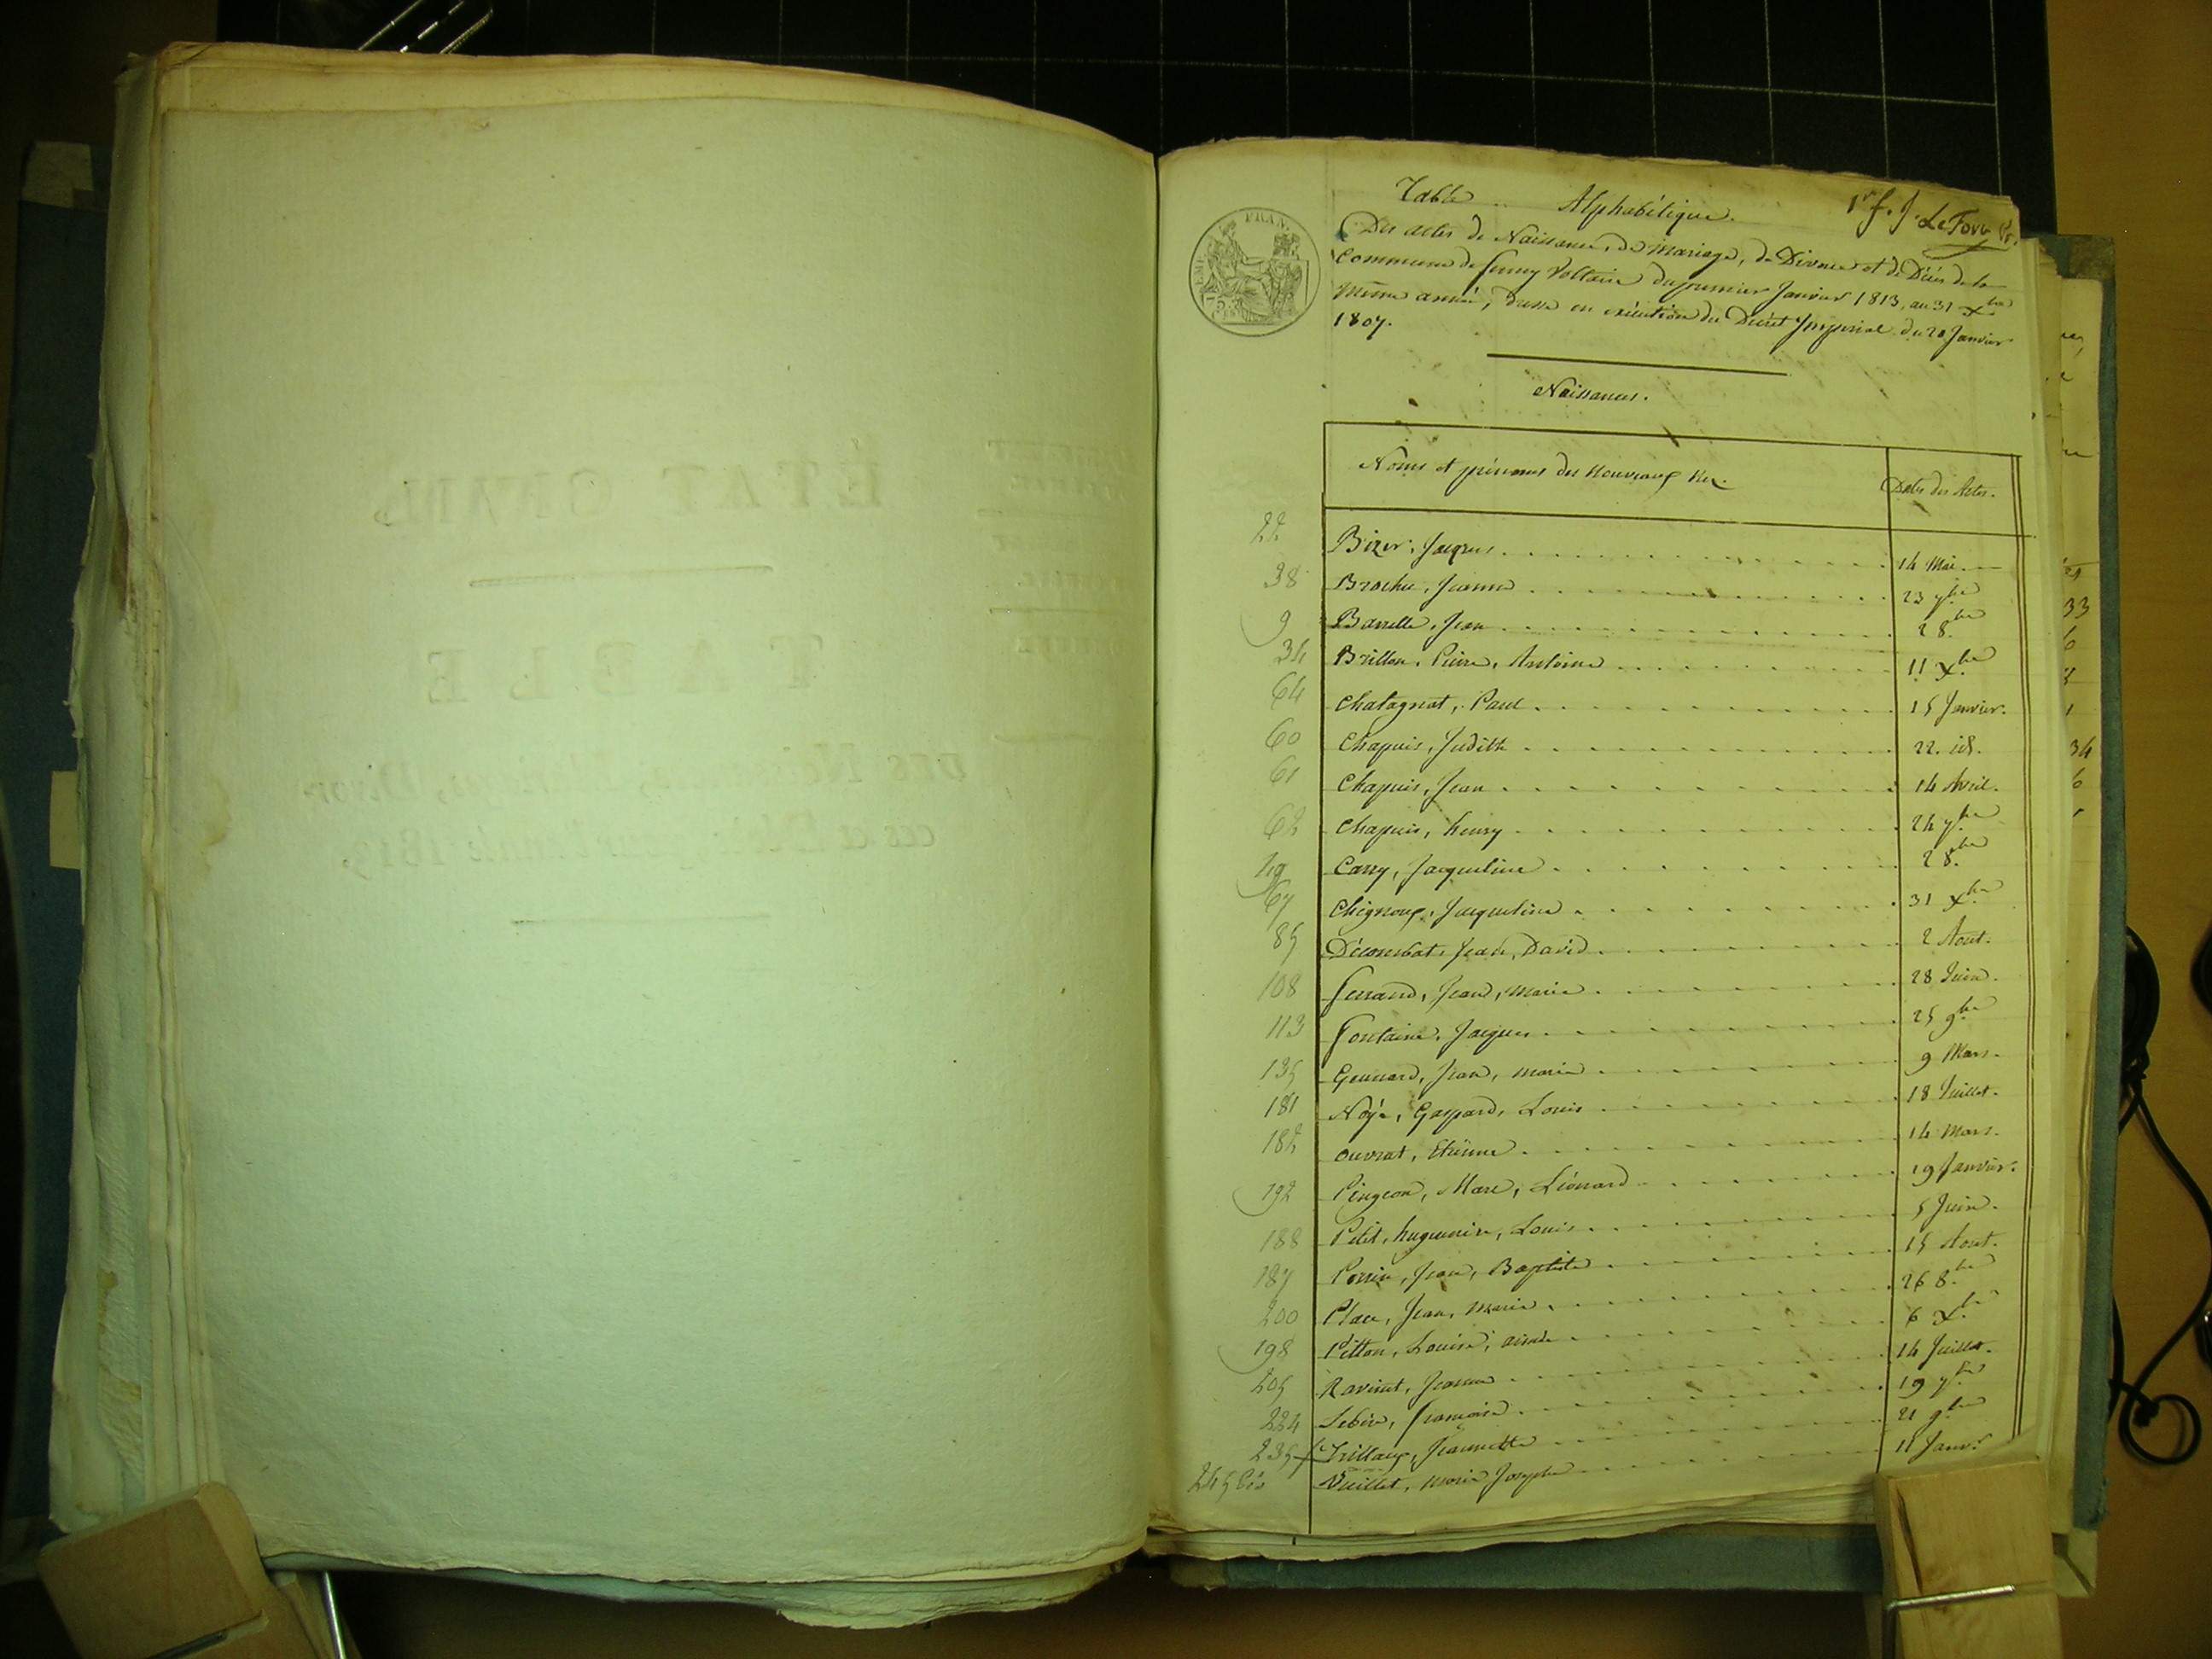 Table Alphabétique.
1er f. J. LeFort Pr.
Des actes de Naissance, de Mariage, de Divorce et de Décès de la
Commune de ferney Voltaire du premier Janvier 1813, au 31 Xbre
même année, dressé en exécution du Décret Impérial du 20 Janvier
1807.
Naissances.
Noms et prénoms des nouveaux Nés. Dates des Actes.
22 Jacques 14 Mai
38 Jeanne 23 7bre
9 Barrelle, Jean 2 8bre
34 Brillon, Pierre, Antoine 11 Xbre
64 Chatagnat, Paul 15 Janvier.
60 Chapuis, Judith 22. id.
61 Chapuis, Jean 14 Avril.
62 Chapuis, henry 24 7bre
49 Carry, Jacqueline 2 8bre
67 Chegnoux, Jacqueline 31 Xbre
85 Décombat, Jean, David 2 Aout.
108 ferrand, Jean, Marie 28 Juin.
113 Fontaine, Jacques 25 9bre
135 Jean, marie 9 Mars.
181 Gaspard, Louis 18 Juillet.
182 ouvrat, Etienne 14 Mars.
192 Pingeon, Marc, Léonard 19 Janvier.
188 Petit, huguenin, Louis 5 Juin.
187 Perrin, Jean, Baptiste 15 Aout.
200 Place, Jean, Marie 26 8bre
198 Pitton, Louise, aimée 6 Xbre
205 Ravinet, Jeanne 14 Juillet.
224 françoise 19 7bre
235 Trillaux, Jeannette 21 9bre
245 bis Vuillet, Marie Josephe 11 Janvr
ÉTAT CIVIL
TABLE
DES Naissances, Mariages, Divor-
ces et Décès pour l'année 1813.
33
6
34
6